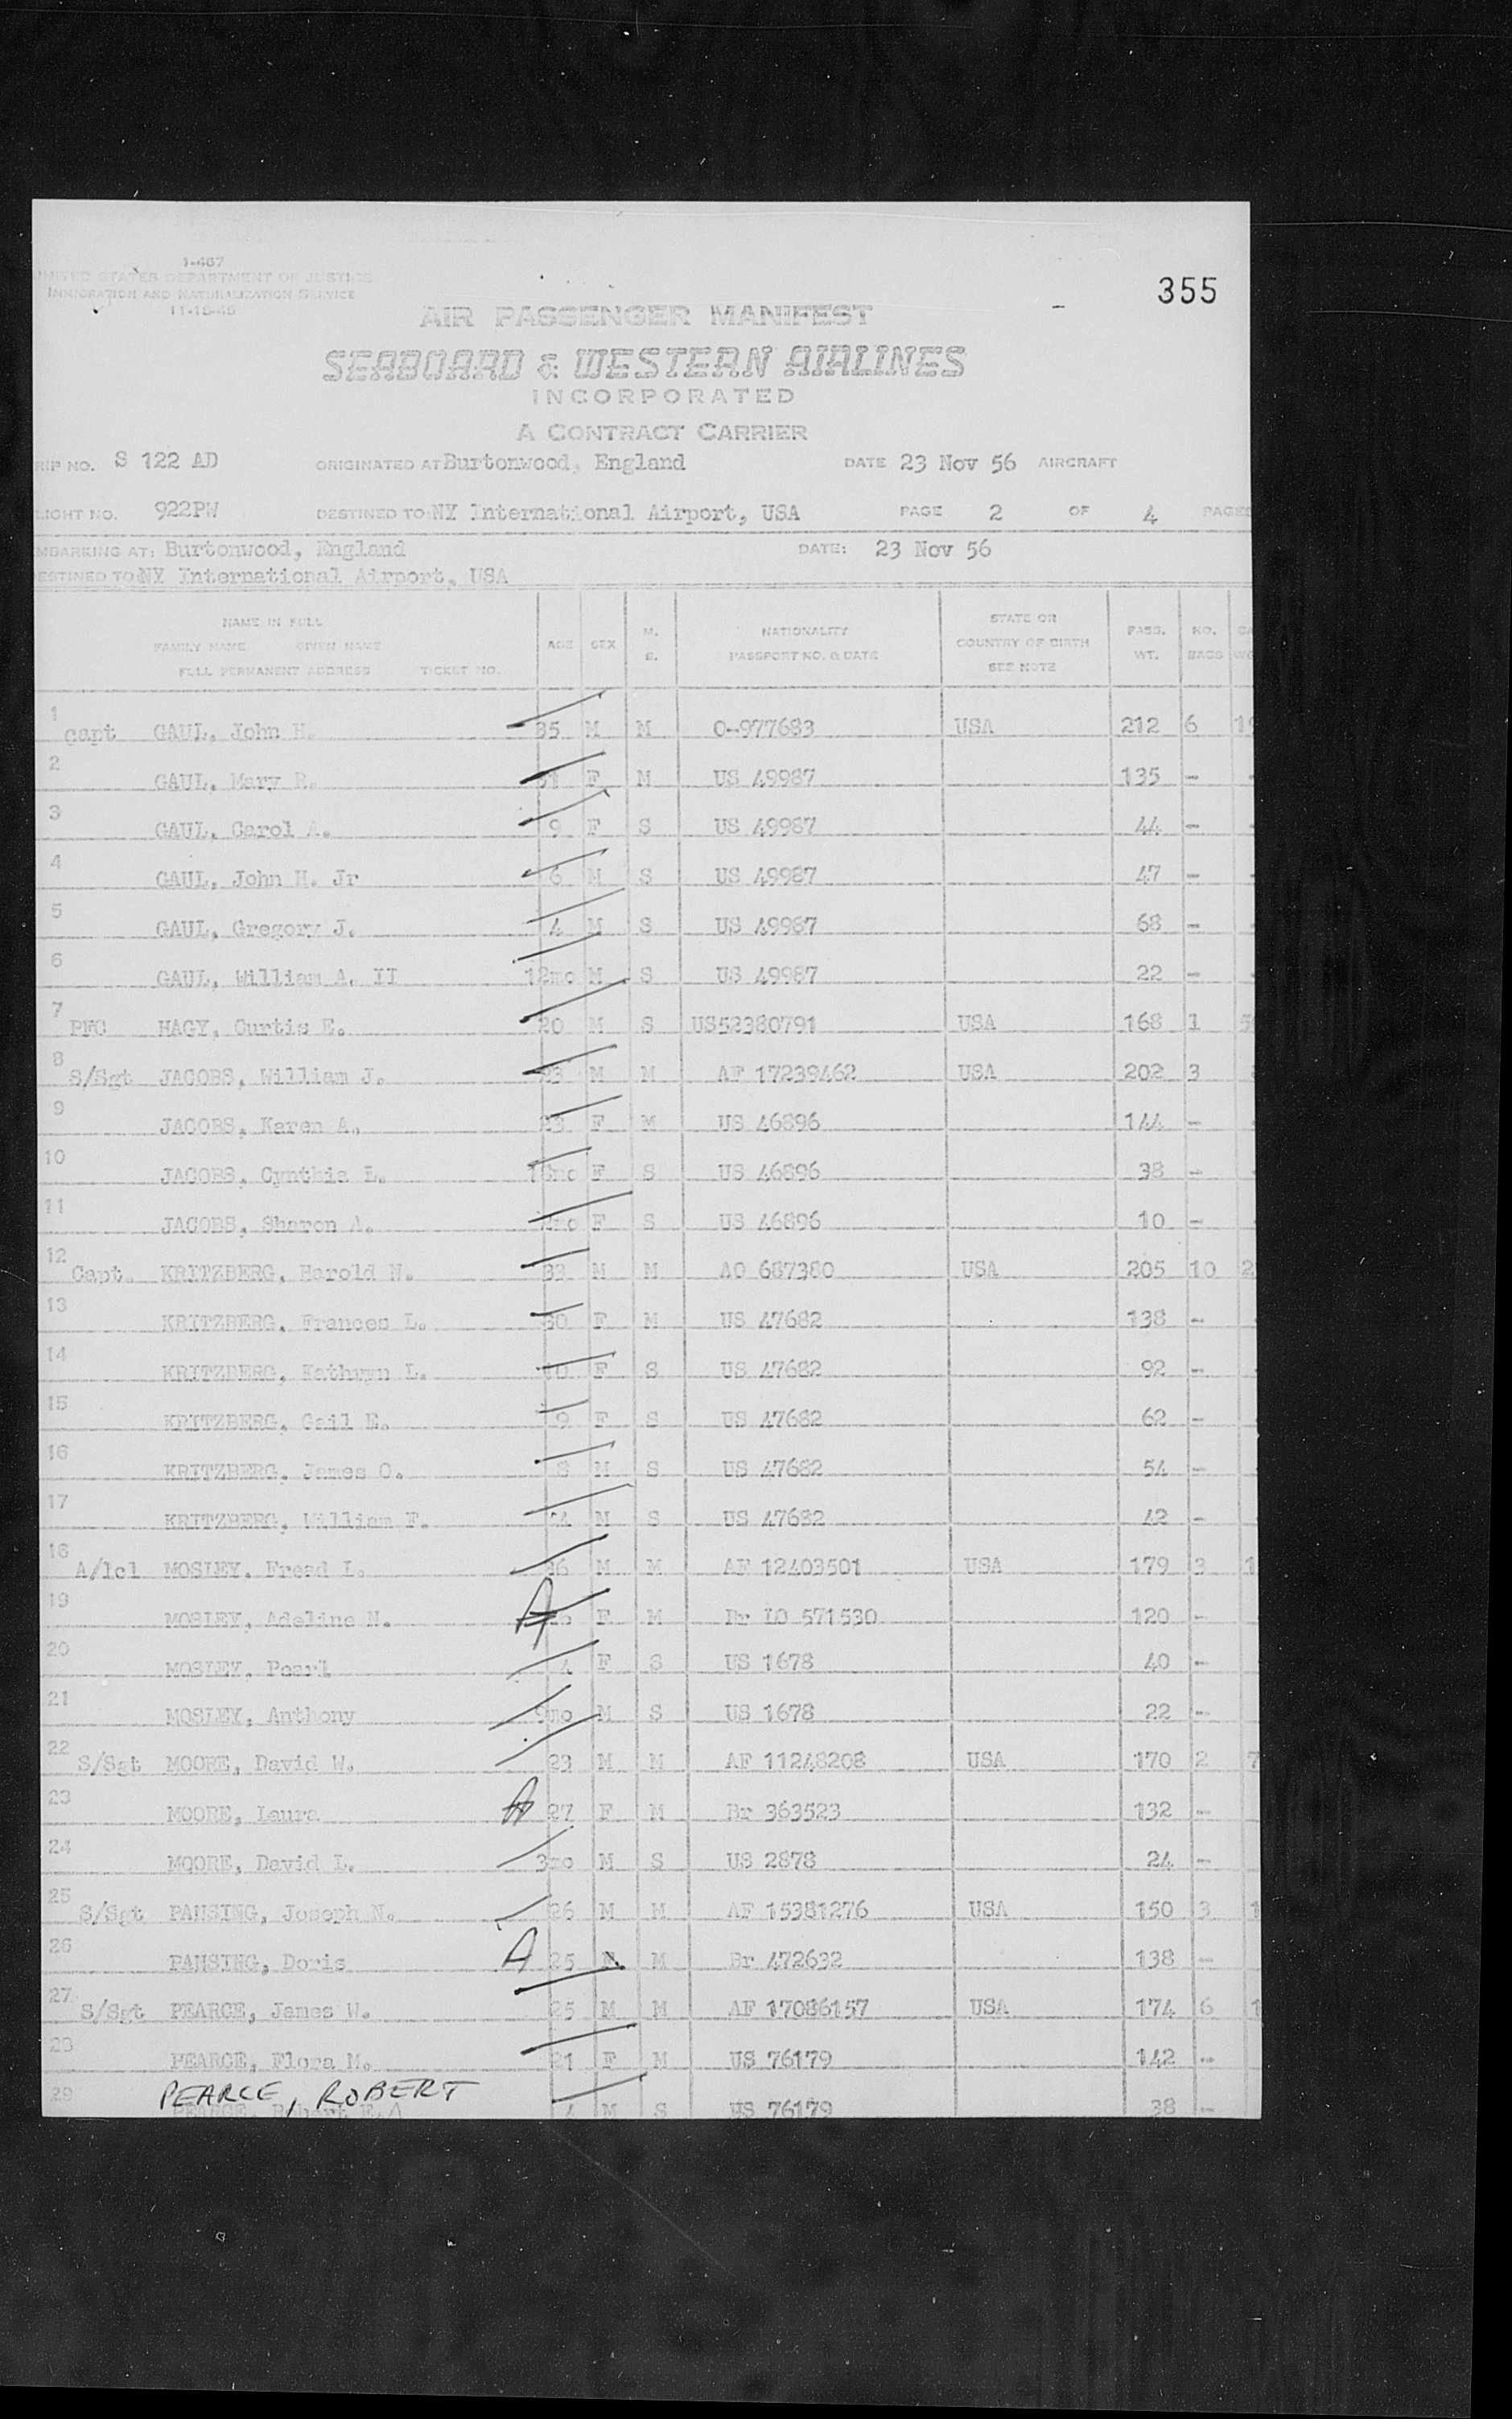 1-467
UNITED STATES DEPARTMENT OF JUSTICE
IMMIGRATION AND NATURALIZATION SERVICE
11-15-45
355
AIR PASSENGER MANIFEST
SEABOARD & WESTERN AIRLINES
INCORPORATED
A CONTRACT CARRIER
RIP NO. S 122 AD ORIGINATED AT Burtonwood, England DATE 23 Nov 56 AIRCRAFT
LIGHT NO. 922PW DESTINED TO NY International Airport, USA PAGE 2 OF 4 PAGES
MBARKING AT: Burtonwood, England DATE: 23 Nov 56
ESTINED TO NY International Airport, USA
NAME IN FULL
FAMILY NAME GIVEN NAME
FULL PERMANENT ADDRESS TICKET NO. AGE SEX M. S. NATIONALITY PASSPORT NO. & DATE STATE OR COUNTRY OF BIRTH SEE NOTE PASS. WT. NO. BAGS
1 Capt GAUL, John H. 35 M M O-977683 USA 212 6
2 GAUL, Mary R. F M US 49987 135 -
3 GAUL, Carol A. 9 F S US 49987 44 -
4 GAUL, John H. Jr 6 M S US 49987 47 -
5 GAUL, Gregory J. 4 M S US 49987 68 -
6 GAUL, William A. II 12mo M S US 49987 22 -
7 PFC HAGY, Curtis E. 20 M S US52380791 USA 168 1
8 S/Sgt JACOBS, William J. 23 M M AF 17239462 USA 202 3
9 JACOBS, Karen A. 23 F M US 46896 144 -
10 JACOBS, Cynthia L. F S US 46896 38 -
11 JACOBS, Sharon A. F S US 46896 10 -
12 Capt. KRITZBERG, Harold N. 33 M M AO 687380 USA 205 10
13 KRITZBERG, Frances L. 30 F M US 47682 138 -
14 KRITZBERG, Kathryn L. F S US 47682 92 -
15 KRITZBERG, Gail E. 9 F S US 47682 62 -
16 KRITZBERG, James O. 8 M S US 47682 54 -
17 KRITZBERG, William F. 4 M S US 47682 42 -
18 A/1cl MOSLEY, Fread L. 26 M M AF 12403501 USA 179 3
19 MOSLEY, Adeline N. A F M Br LO 571530 120 -
20 MOSLEY, Pearl 4 F S US 1678 40 -
21 MOSLEY, Anthony 9mo M S US 1678 22 -
22 S/Sgt MOORE, David W. 23 M M AF 11248208 USA 170 2 7
23 MOORE, Laura A 27 F M Br 363523 132 -
24 MOORE, David L. 3mo M S US 2878 24 -
25 S/Sgt PANSING, Joseph N. 26 M M AF 15381276 USA 150 3 1
26 PANSING, Doris A 25 M Br 472632 138 -
27 S/Sgt PEARCE, James W. 25 M M AF 17086157 USA 174 6 1
28 PEARCE, Flora M. 21 F M US 76179 142 -
PEARCE, ROBERT
29 PEARCE, Robert E. 4 M S US 76179 38 -